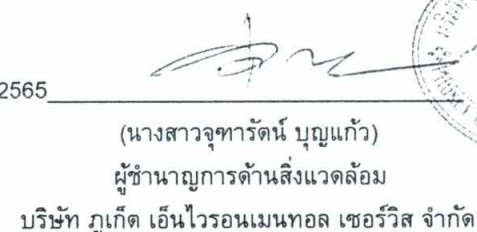 2565
(นางสาวจุฑารัตน์ บุญแก้ว)
ผู้ชำนาญการด้านสิ่งแวดล้อม
บริษัท ภูเก็ต เอ็นไวรอนเมนทอล เซอร์วิส จำกัด